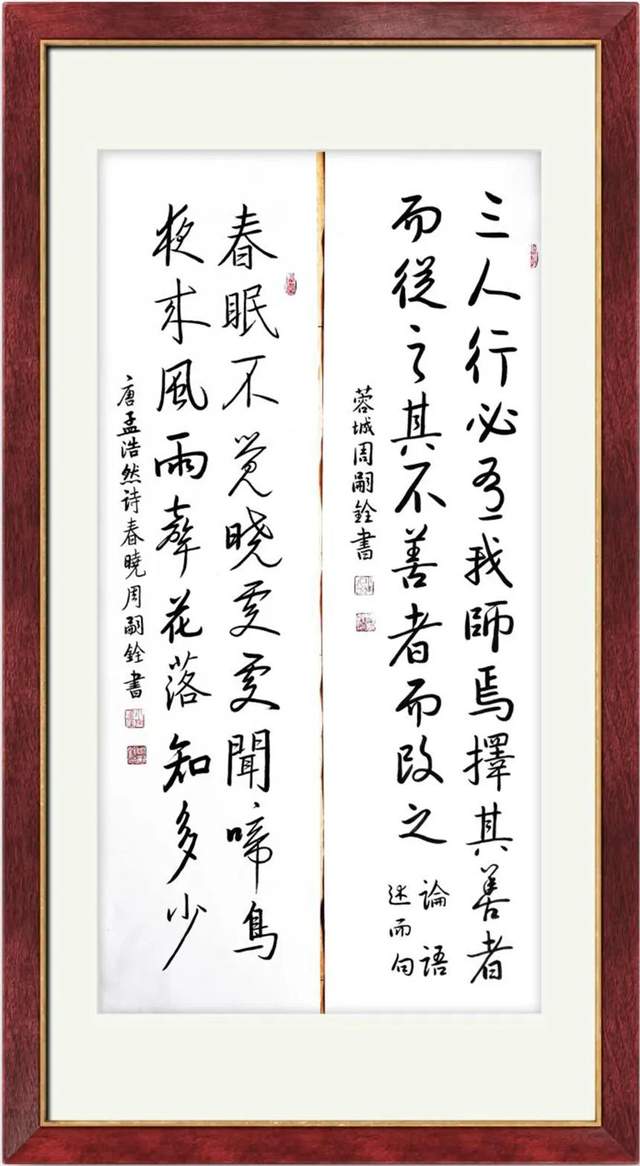 三人行必有我師焉擇其善者
而從之其不善者而改之
論語
述而句
蓉城周嗣銓書
春眠不覚晓雯雯聞啼鳥
夜来風雨聲花落知多少
唐孟浩然诗春曉周嗣銓書